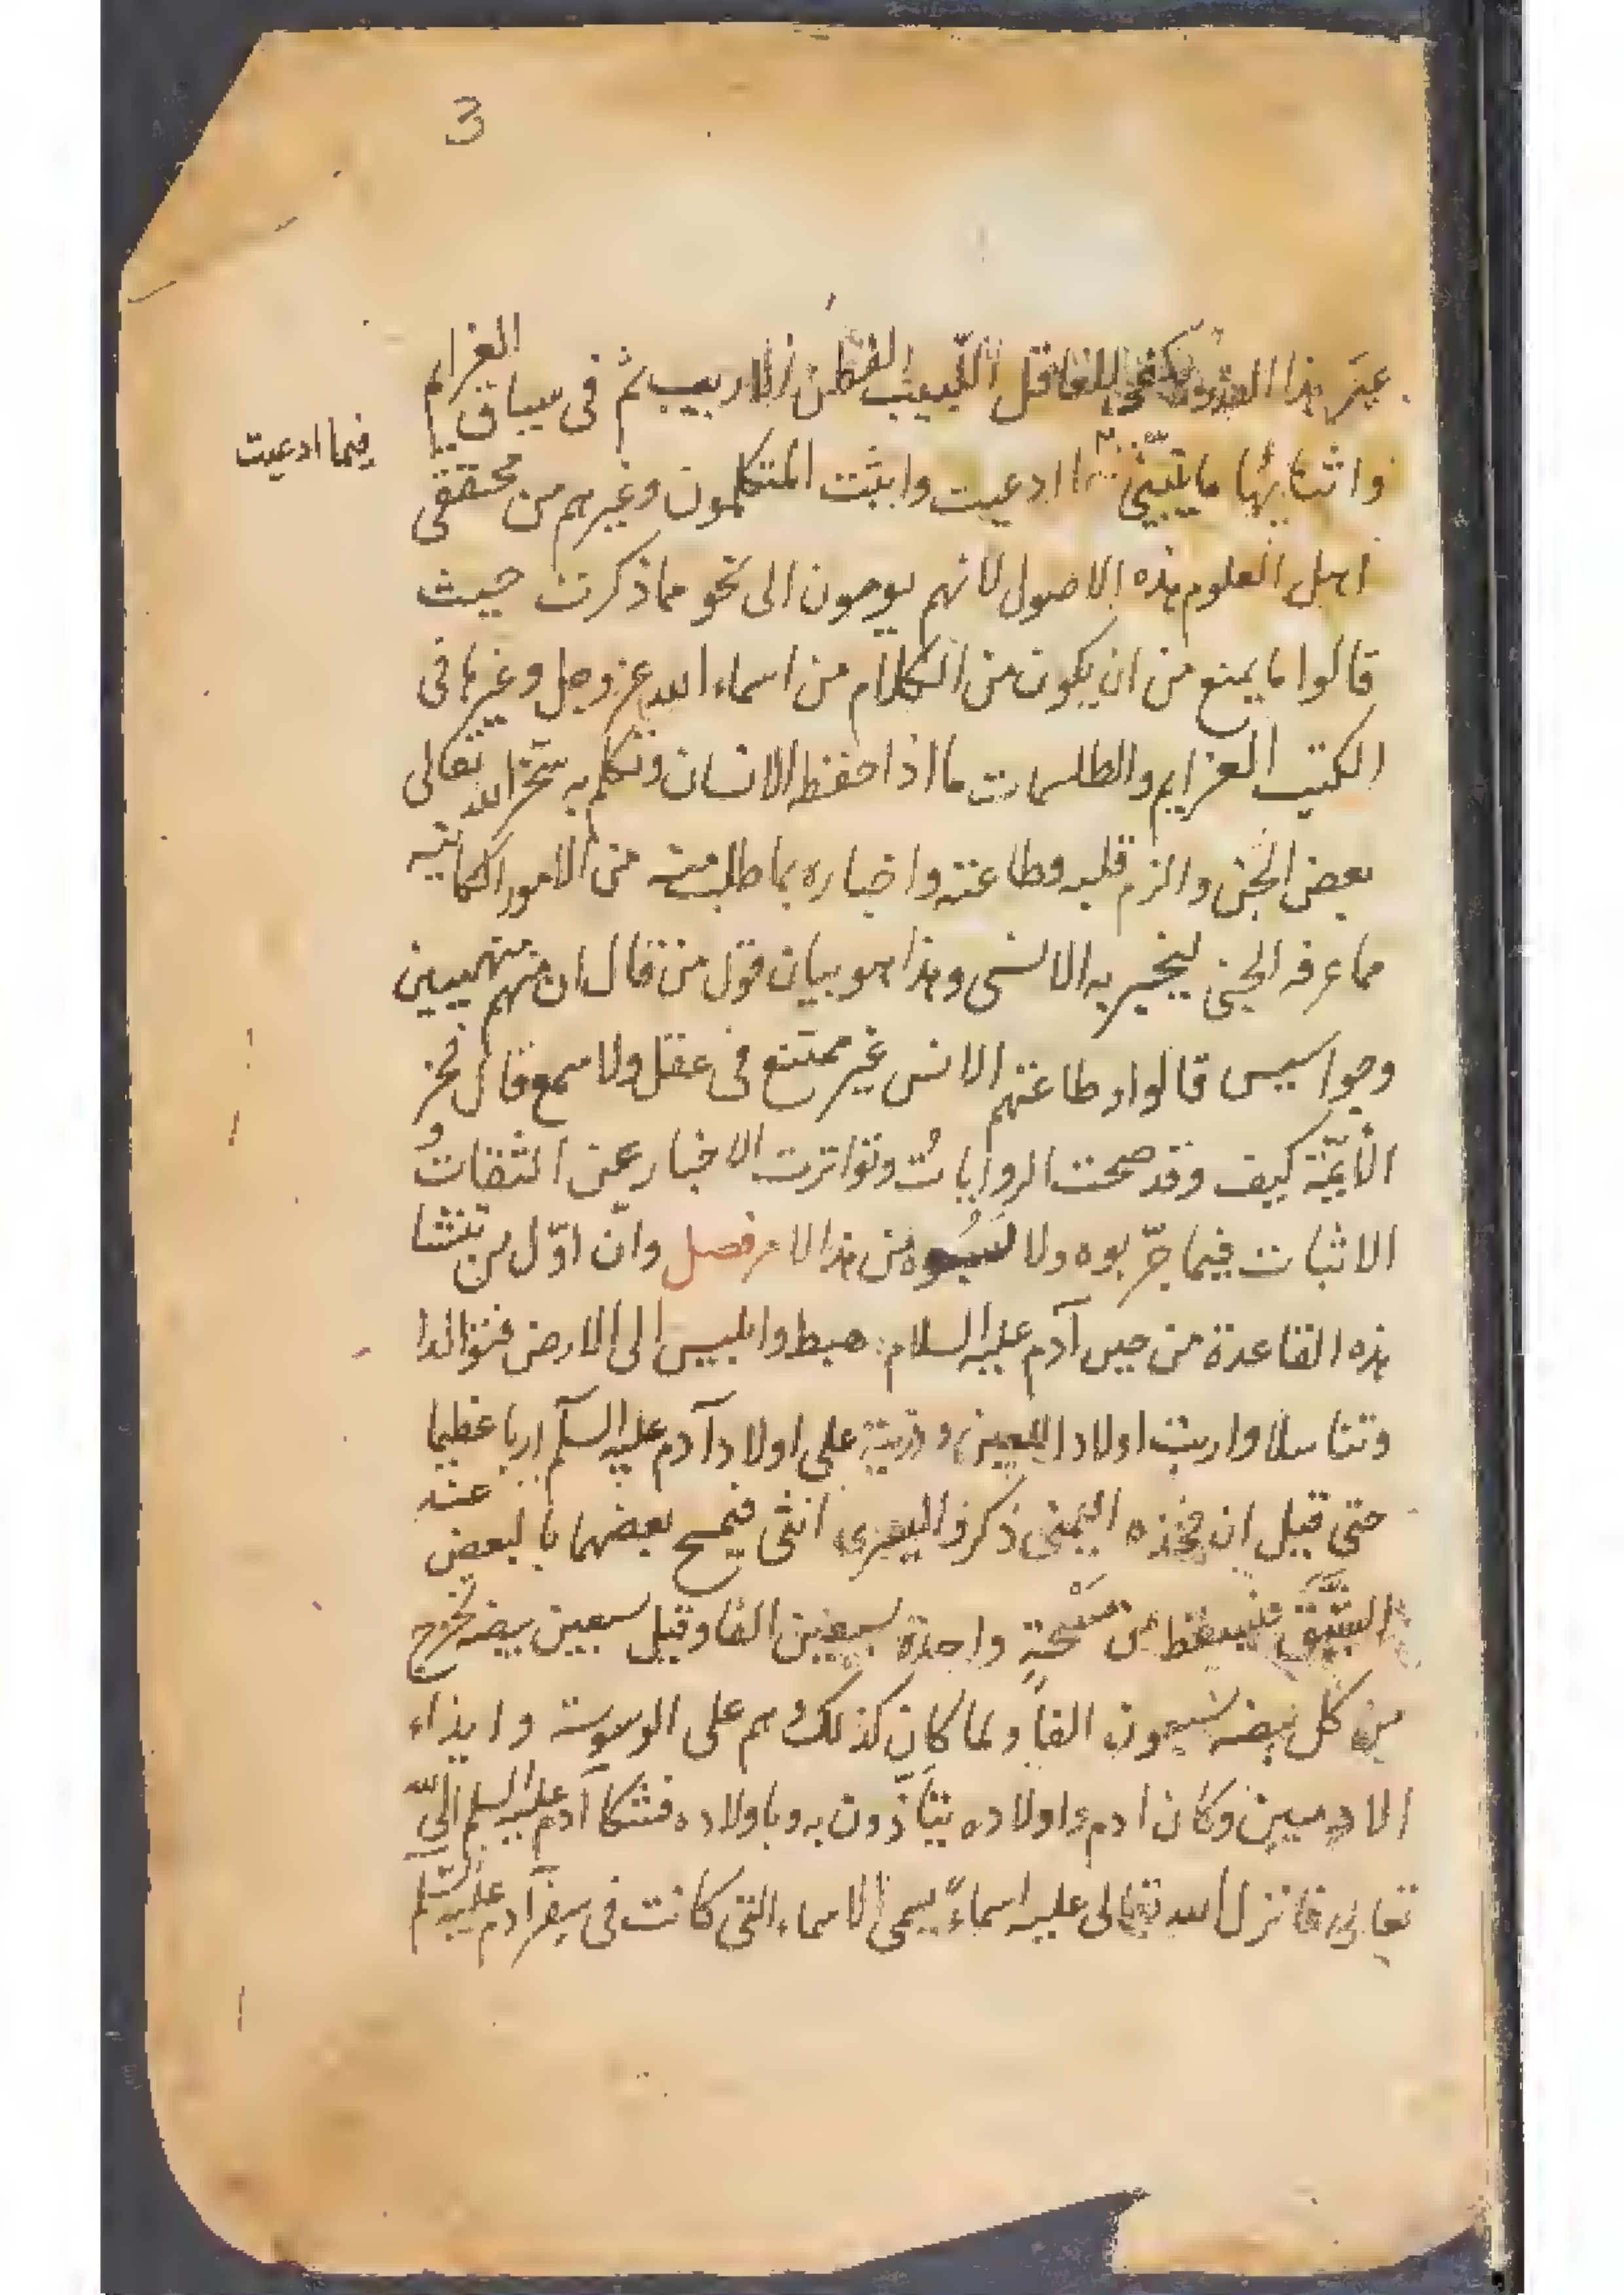 3
غير هذا العدو يكفى للعاقل اللبيب الفطن الاريب ثم فى سياق العزايم
واثنائها ما يبين ما ادعيت واثبت المتكلمون وغيرهم من محققى
فيما ادعيت
اهل العلوم هذه الاصول لانهم يومون الى نحو مما ذكرت حيث
قالوا ما يمنع من ان يكون من الكلام من اسماء الله عز وجل وغيرها فى
الكتب العزايم والطلسمات ما اذا حفظ الانسان وتكلم به سخر الله تعالى
بعض الجن والزم قلبه وطاعته واخباره بما طلب منه من الامور الكائنه
مما عرفه الجنى ليخبر به الانسى وهذا هو بيان قول من قال ان منهم منهيين
وجواسيس قالوا وطاعتهم الانس غير ممتنع فى عقل ولا سمع قال فخر
الأئمّة كيف وقد صحت الروايات وتواترت الاخبار عن الثقات و
الاثبات فيما جرّبوه ولا من هذا الامر فصل وانّ اوّل من
هذه القاعدة من حين آدم عليه السلام هبط وابليس الى الارض فتوالدا
وتناسلا واربت اولاد اللعين وذريته على اولاد آدم عليه السلم اربا عظيما
حتى قيل ان فخذه اليمنى ذكر واليسرى انثى فيمسح بعضهما بالبعض عند
الشبق فيسقط من مَسْحةٍ واحدة سبعين الفا وقيل سبعين بيضه تخرج
من كل بيضه سبعون الفا ولما كان كذلك هم على الوسوسة وايذاء
الادميين وكان ادم واولاده يتأذّون به وباولاده فشكا آدم عليه السلم الى الله
تعالى فانزل الله تعالى عليه اسماءً يسمى الاسماء التى كانت فى سفر آدم عليه السلم